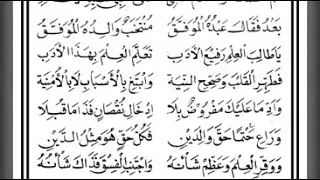 بَعْدُ فَقَالَ عَبْدُهُ الْمُوَفَّقُ مُنْتَخَبٌ وَالِدُهُ الْمُوَفَّقُ
يَاطَالِبَ الْعِلْمِ رَفِيعَ الْأَدَبِ تَعَلَّمِ الْعِلْمَ بِهٰذَا الْأَدَبِ
فَطَهِّرِ الْقَلْبَ وَصَحِّحِ النِّيَّةْ وَابْتَغِ بِالْأَسْبَابِ لَابِالْأُمْنِيَّةْ
وَأَدِّ مَاعَلَيْكَ مَفْرُوضٌ بِلَا إِدْخَالِ نُقْصَانٍ فَذَا مَاقُبِلَا
وَرَاعِ حَتْمًا حَقَّ وَالِدَيْنِ فَكُلُّ حَقٍّ هُوَ مِثْلُ الدَّيْنِ
وَوَقِّرِ الْعِلْمَ وَعَظِّمْ شَأْنَهُ وَاجْتَنِبِ الْفِسْقَ فَذَاكَ شَانَهُ